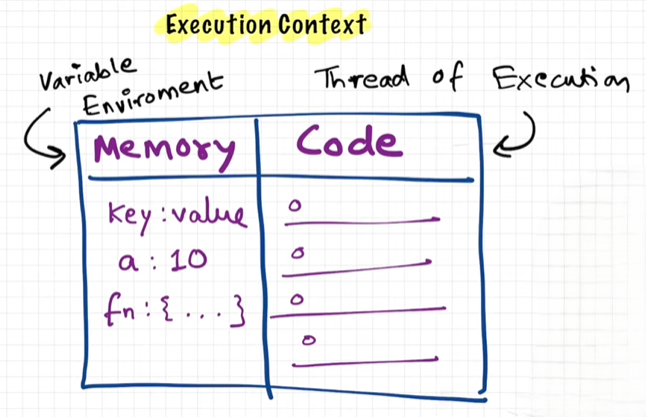 Execution Context
Variable
Enviroment
Thread of Execution
Memory
Code
Key : value
a : 10
fn : { ... }